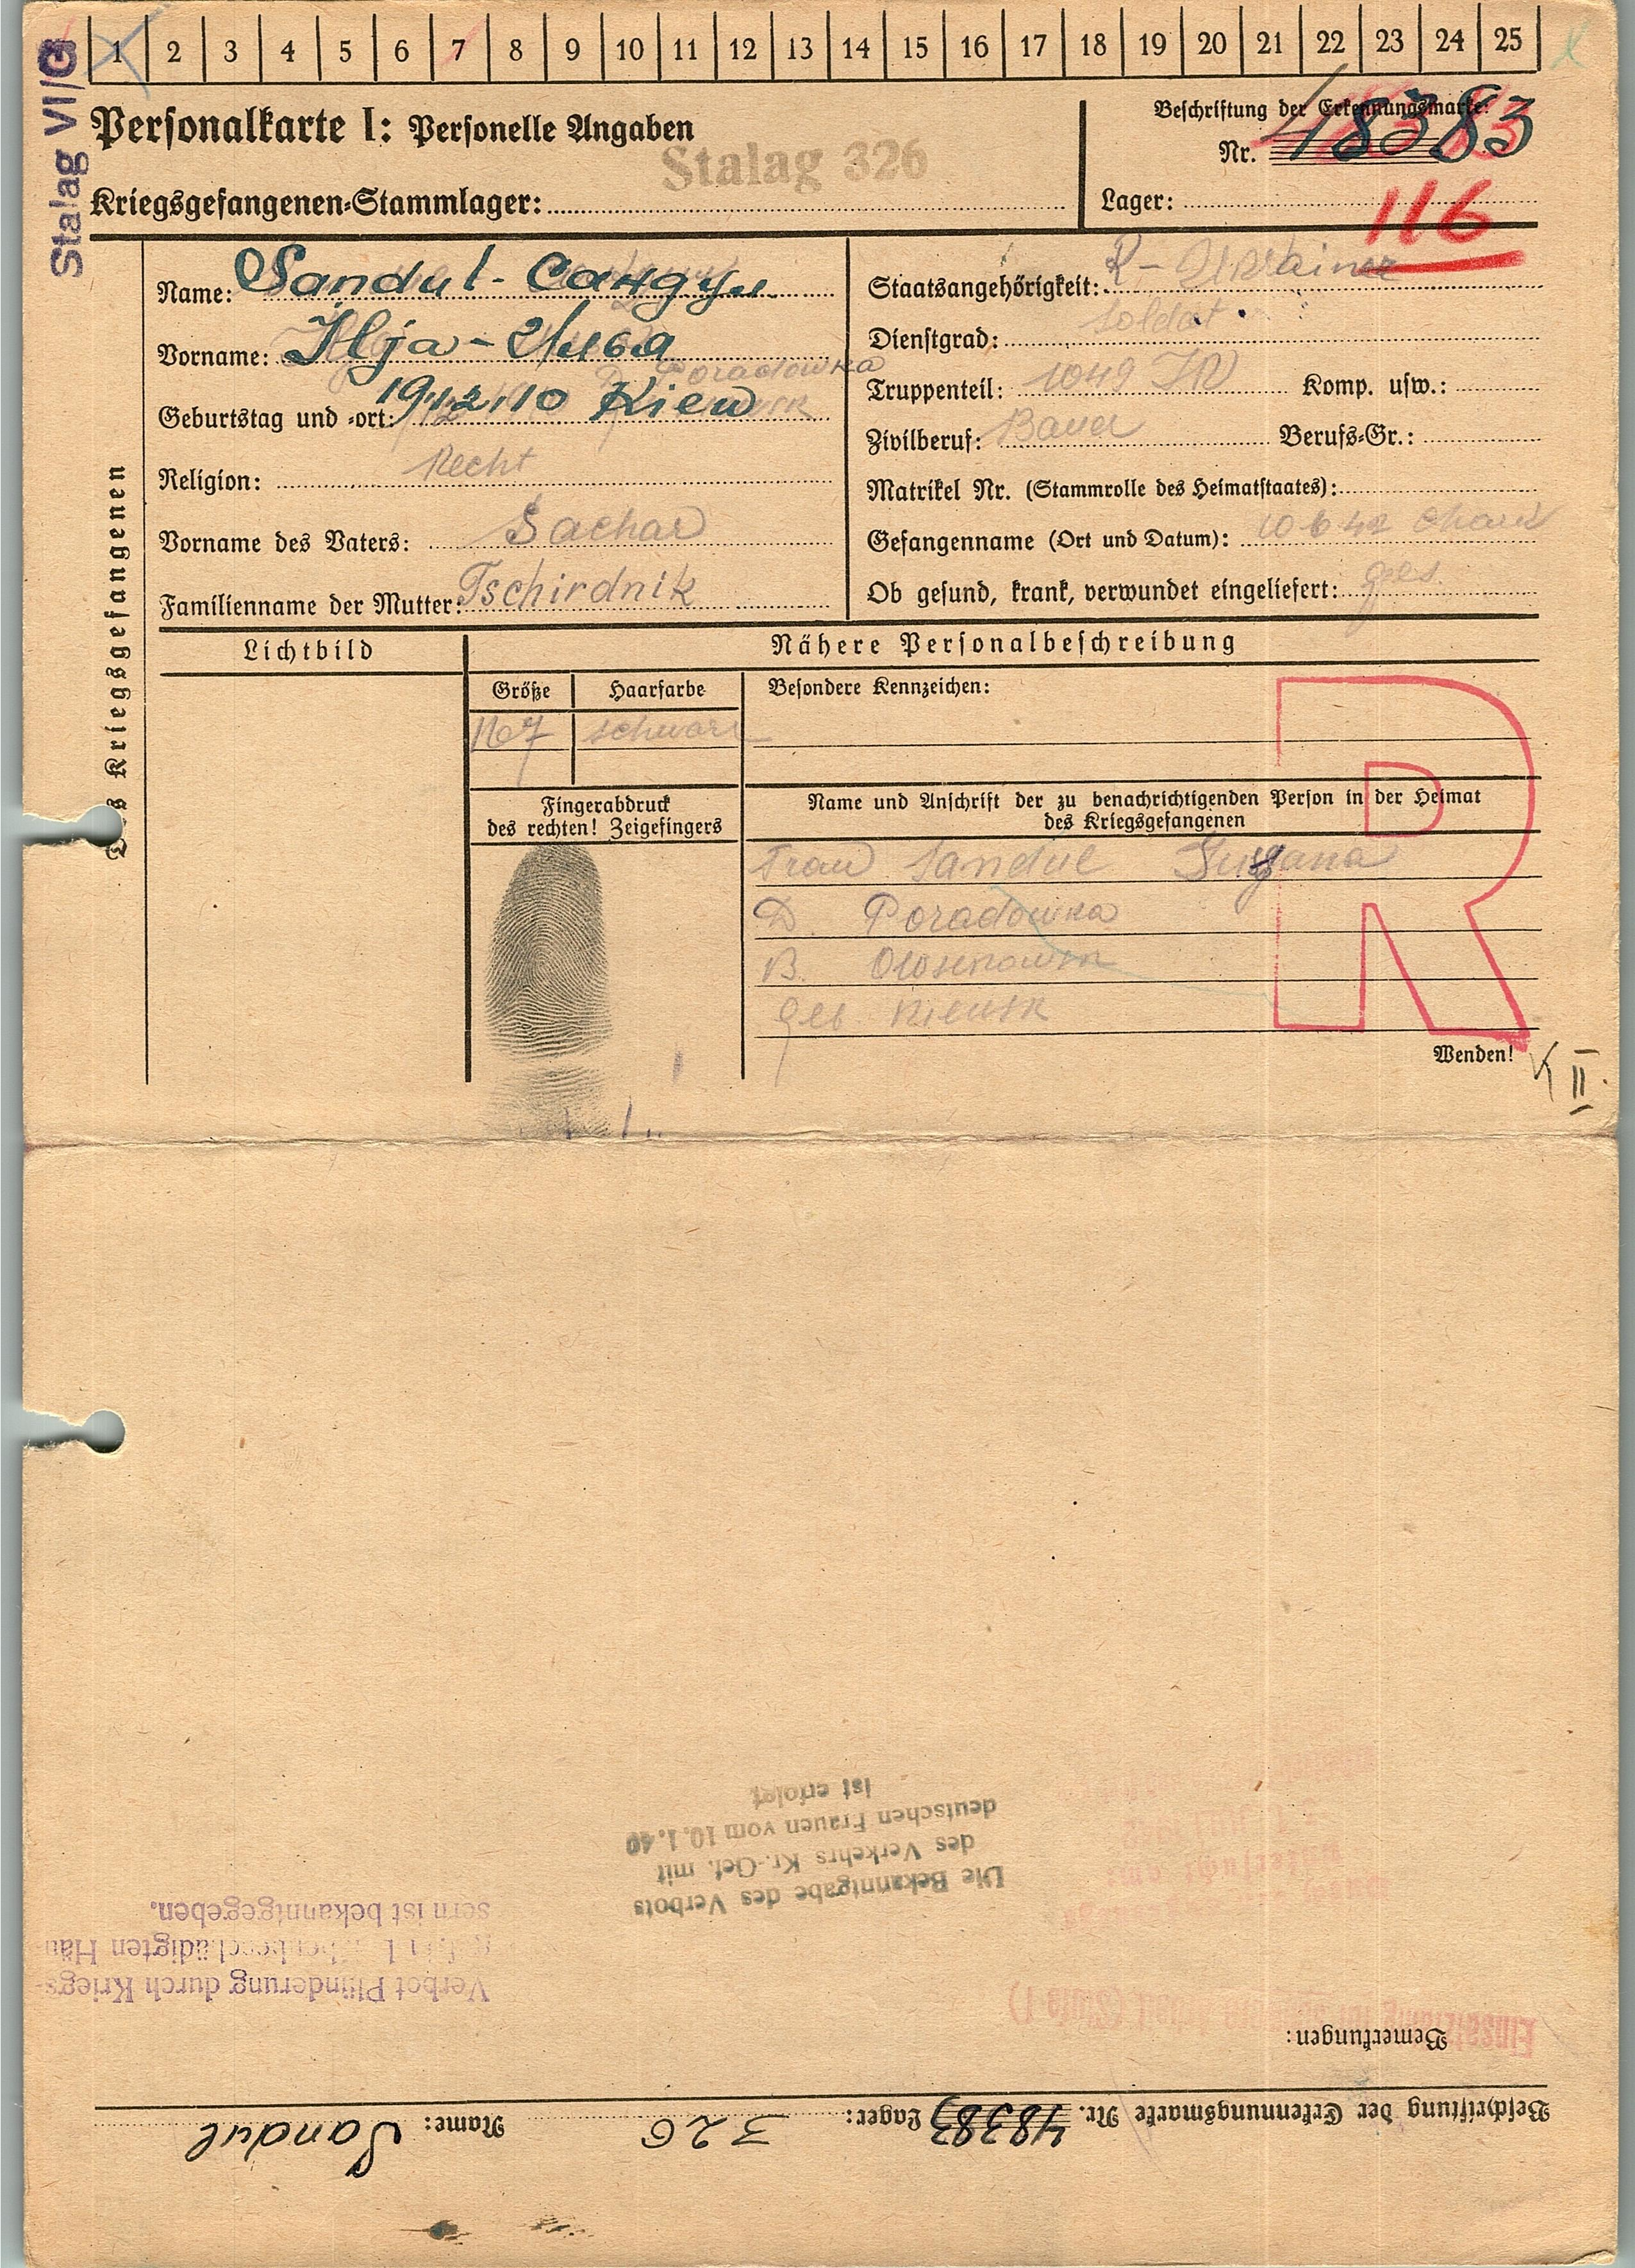 1 2 3 4 5 6 7 8 9 10 11 12 13 14 15 16 17 18 19 20 21 22 23 24 25
Stalag VI/G
Personalkarte I: Personelle Angaben
Stalag 326
Kriegsgefangenen-Stammlager:
Beschriftung der Erkennungsmarke:
Nr. 48383
Lager:
116
Des Kriegsgefangenen
Name: Sandul - Сандул
Vorname: Ilja - Илья
Poradowka
Geburtstag und -ort: 1912.10 Kiew
Religion: Recht
Vorname des Vaters: Sachar
Familienname der Mutter: Tschirdnik
Staatsangehörigkeit: R - Ukrainer
Dienstgrad: Soldat
Truppenteil: 1049 IR Komp. usw.:
Zivilberuf: Bauer Berufs-Gr.:
Matrikel Nr. (Stammrolle des Heimatstaates):
Gefangenname (Ort und Datum): 10 6 42 Chark
Ob gesund, krank, verwundet eingeliefert: ges.
Lichtbild
Nähere Personalbeschreibung
Größe Haarfarbe Besondere Kennzeichen:
167 schwarz
Fingerabdruck
des rechten! Zeigefingers
Name und Anschrift der zu benachrichtigenden Person in der Heimat
des Kriegsgefangenen
Frau Sandul
D. Poradowka
B.
Geb. Kiewsk
R
Wenden!
K II.
Beschriftung der Erkennungsmarke Nr. 48383 Lager: 326 Name: Sandul
Bemerkungen:
Einsatzfähig für Arbeit (Stufe 1)
Verbot Plünderung durch Kriegs-
gef. in beschädigten Häu
sern ist bekanntgegeben.
Die Bekanntgabe des Verbots
des Verkehrs Kr.-Gef. mit
deutschen Frauen vom 10.1.40
ist erfolgt